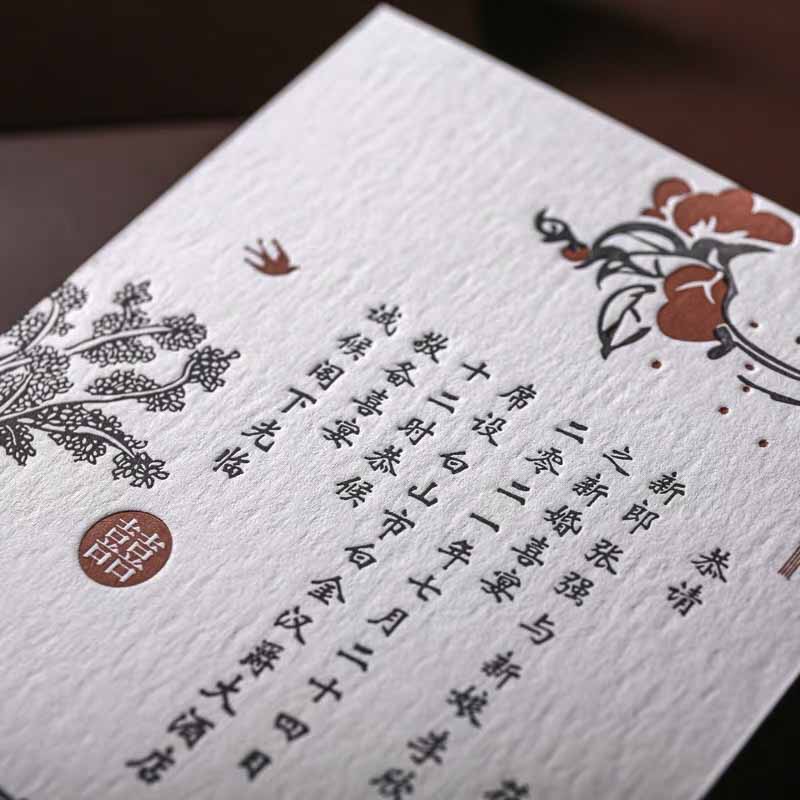 恭请
新郎张强与新娘李欣
之新婚喜宴
二零二一年七月二十四日
席设白山市白金汉爵大酒店
十二时恭候
敬备喜宴
诚候阁下光临
囍